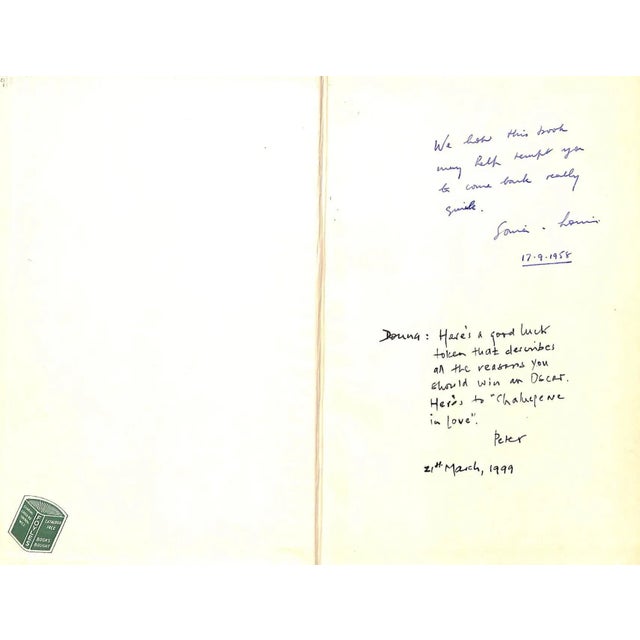 We hope this book
may help tempt you
to come back really
quick.
Sonia - Louis
17-9-1958
Donna: Here's a good luck
token that describes
all the reasons you
should win an Oscar.
Here's to "Shakespeare
in Love".
Peter
21st March, 1999
FOYLES
CATALOGUE
FREE
BOOKS
BOUGHT